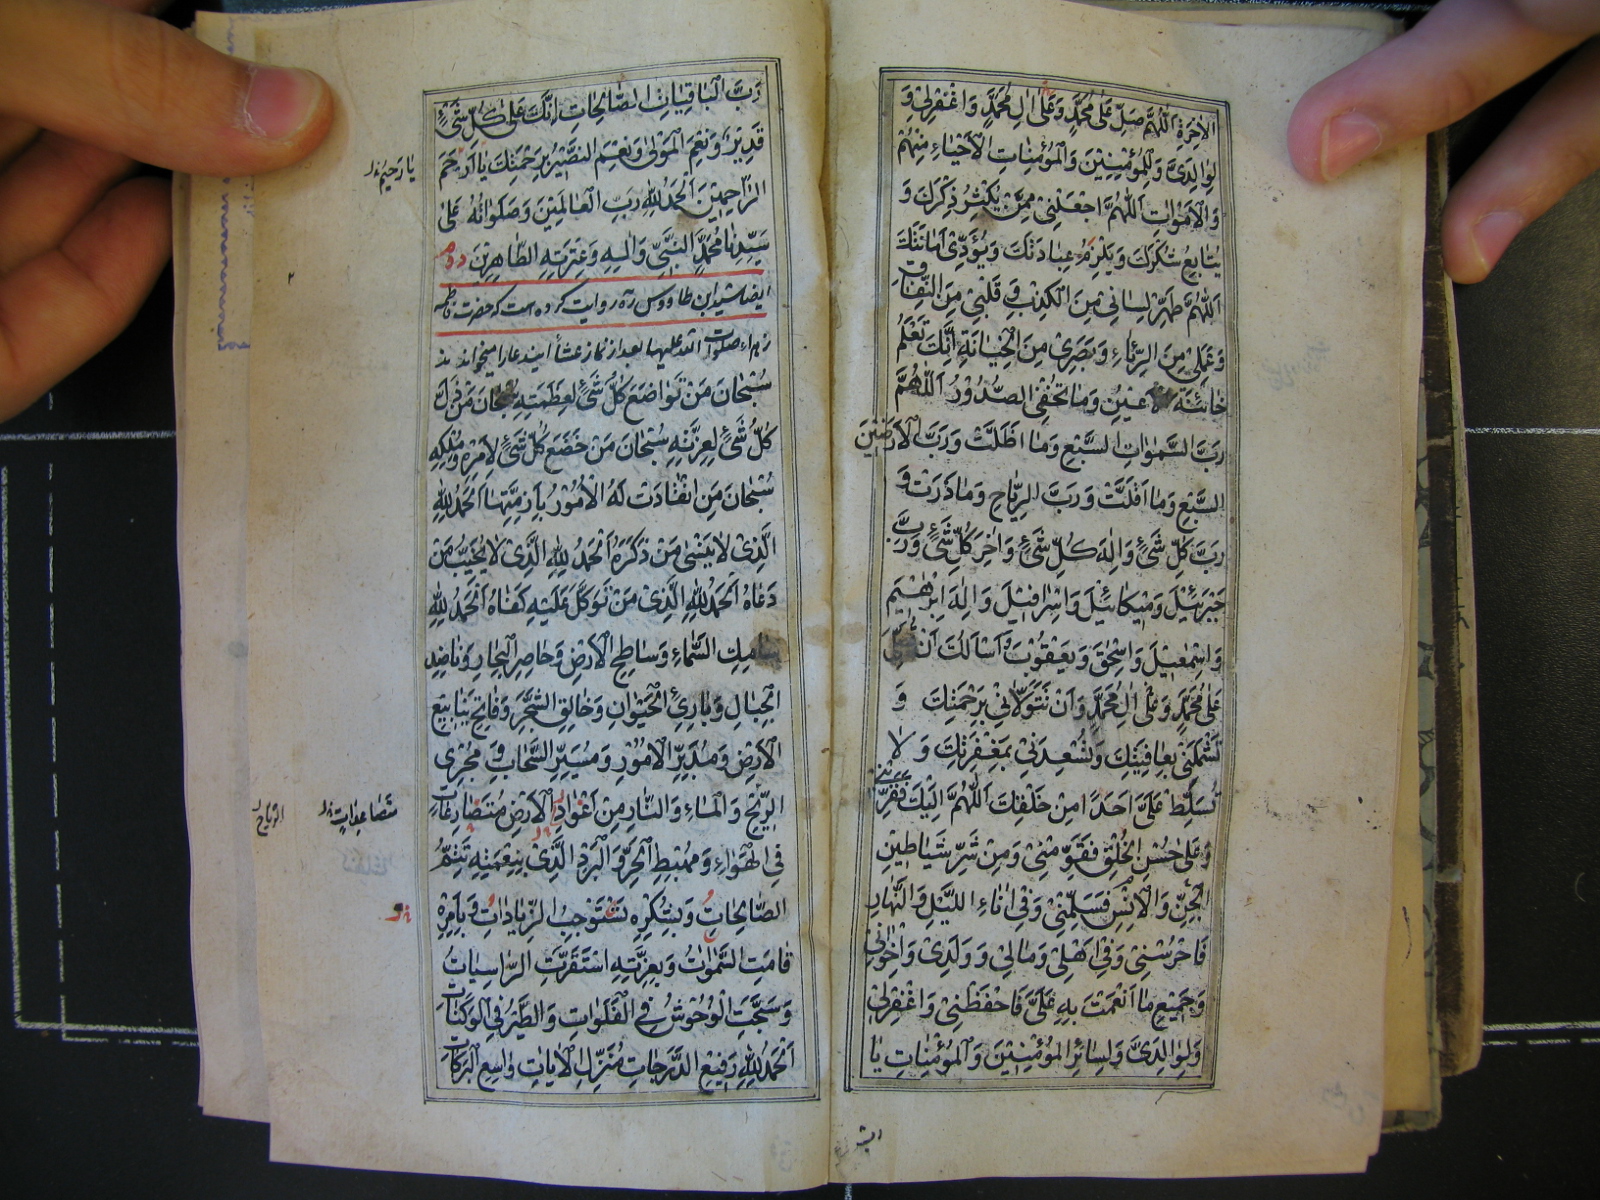 الاخرة اللهم صل على محمد وعلى ال محمد واغفرلى و
لوالدى وللمؤمنين والمؤمنات الاحياء منهم
والاموات اللهم اجعلنى ممن يكثر ذكرك و
يتابع شكرك ويلزم عبادتك ويؤدى امانتك
اللهم طهر لسانى من الكذب وقلبى من النفاق
وعملى من الرياء وبصرى من الخيانة انك تعلم
خائنة الاعين وما تخفى الصدور اللهم
رب السموات السبع وما اظلت ورب الارضين
السبع وما اقلت ورب الرياح وما ذرت و
رب كل شئ واله كل شئ واخر كل شئ ورب
جبرئيل وميكائيل واسرافيل واله ابرهيم
واسمعيل واسحق ويعقوب اسالك ان تصلى
على محمد وعلى ال محمد وان تتولانى برحمتك و
تشملنى بعافيتك وتسعدنى بمغفرتك ولا
تسلط على احدا من خلقك اللهم اليك فقربنى
وعلى حسن الخلق فقومنى ومن شر شياطين
الجن والانس فسلمنى وفى اناء الليل والنهار
فاحرسنى وفى اهلى ومالى وولدى واخوانى
وجميع ما انعمت به على فاحفظنى واغفرلى
ولوالدى ولسائر المؤمنين والمؤمنات يا
رب الباقيات الصالحات انك على كل شئ
قدير ونعم المولى ونعم النصير برحمتك يا ارحم
يا رحيم
الراحمين الحمد لله رب العالمين وصلواته على
سيدنا محمد النبى واله وعترته الطاهرين
ايضا سيد ابن طاووس ره روايت كرده است كه حضرت فاطمه
زهراء صلوات الله عليها بعد از نماز عشا ايندعا را ميخواندند
سبحان من تواضع كل شئ لعظمته سبحان من ذل
كل شئ لعزته سبحان من خضع كل شئ لامره وملكه
سبحان من انقادت له الامور بازمتها الحمد لله
الذى لا ينسى من ذكره الحمد لله الذى لا يخيب من
دعاه الحمد لله الذى من توكل عليه كفاه الحمد لله
سامك السماء وساطح الارض وحاصر البحار وناضد
الجبال وبارئ الحيوان وخالق الشجر وفاتح ينابيع
الارض ومدبر الامور ومسير السحاب ومجرى
الريح والماء والنار من اغوار الارض متصارعات
متصاعدات
الرياح
فى الهواء ومهبط الحر والبرد الذى بنعمته تتم
الصالحات وبشكره تستوجب الزيادات وبامره
قامت السموات وبعزته استقرت الراسيات
وسبحت الوحوش فى الفلوات والطير فى الوكنات
الحمد لله رفيع الدرجات منزل الايات واسع البركات